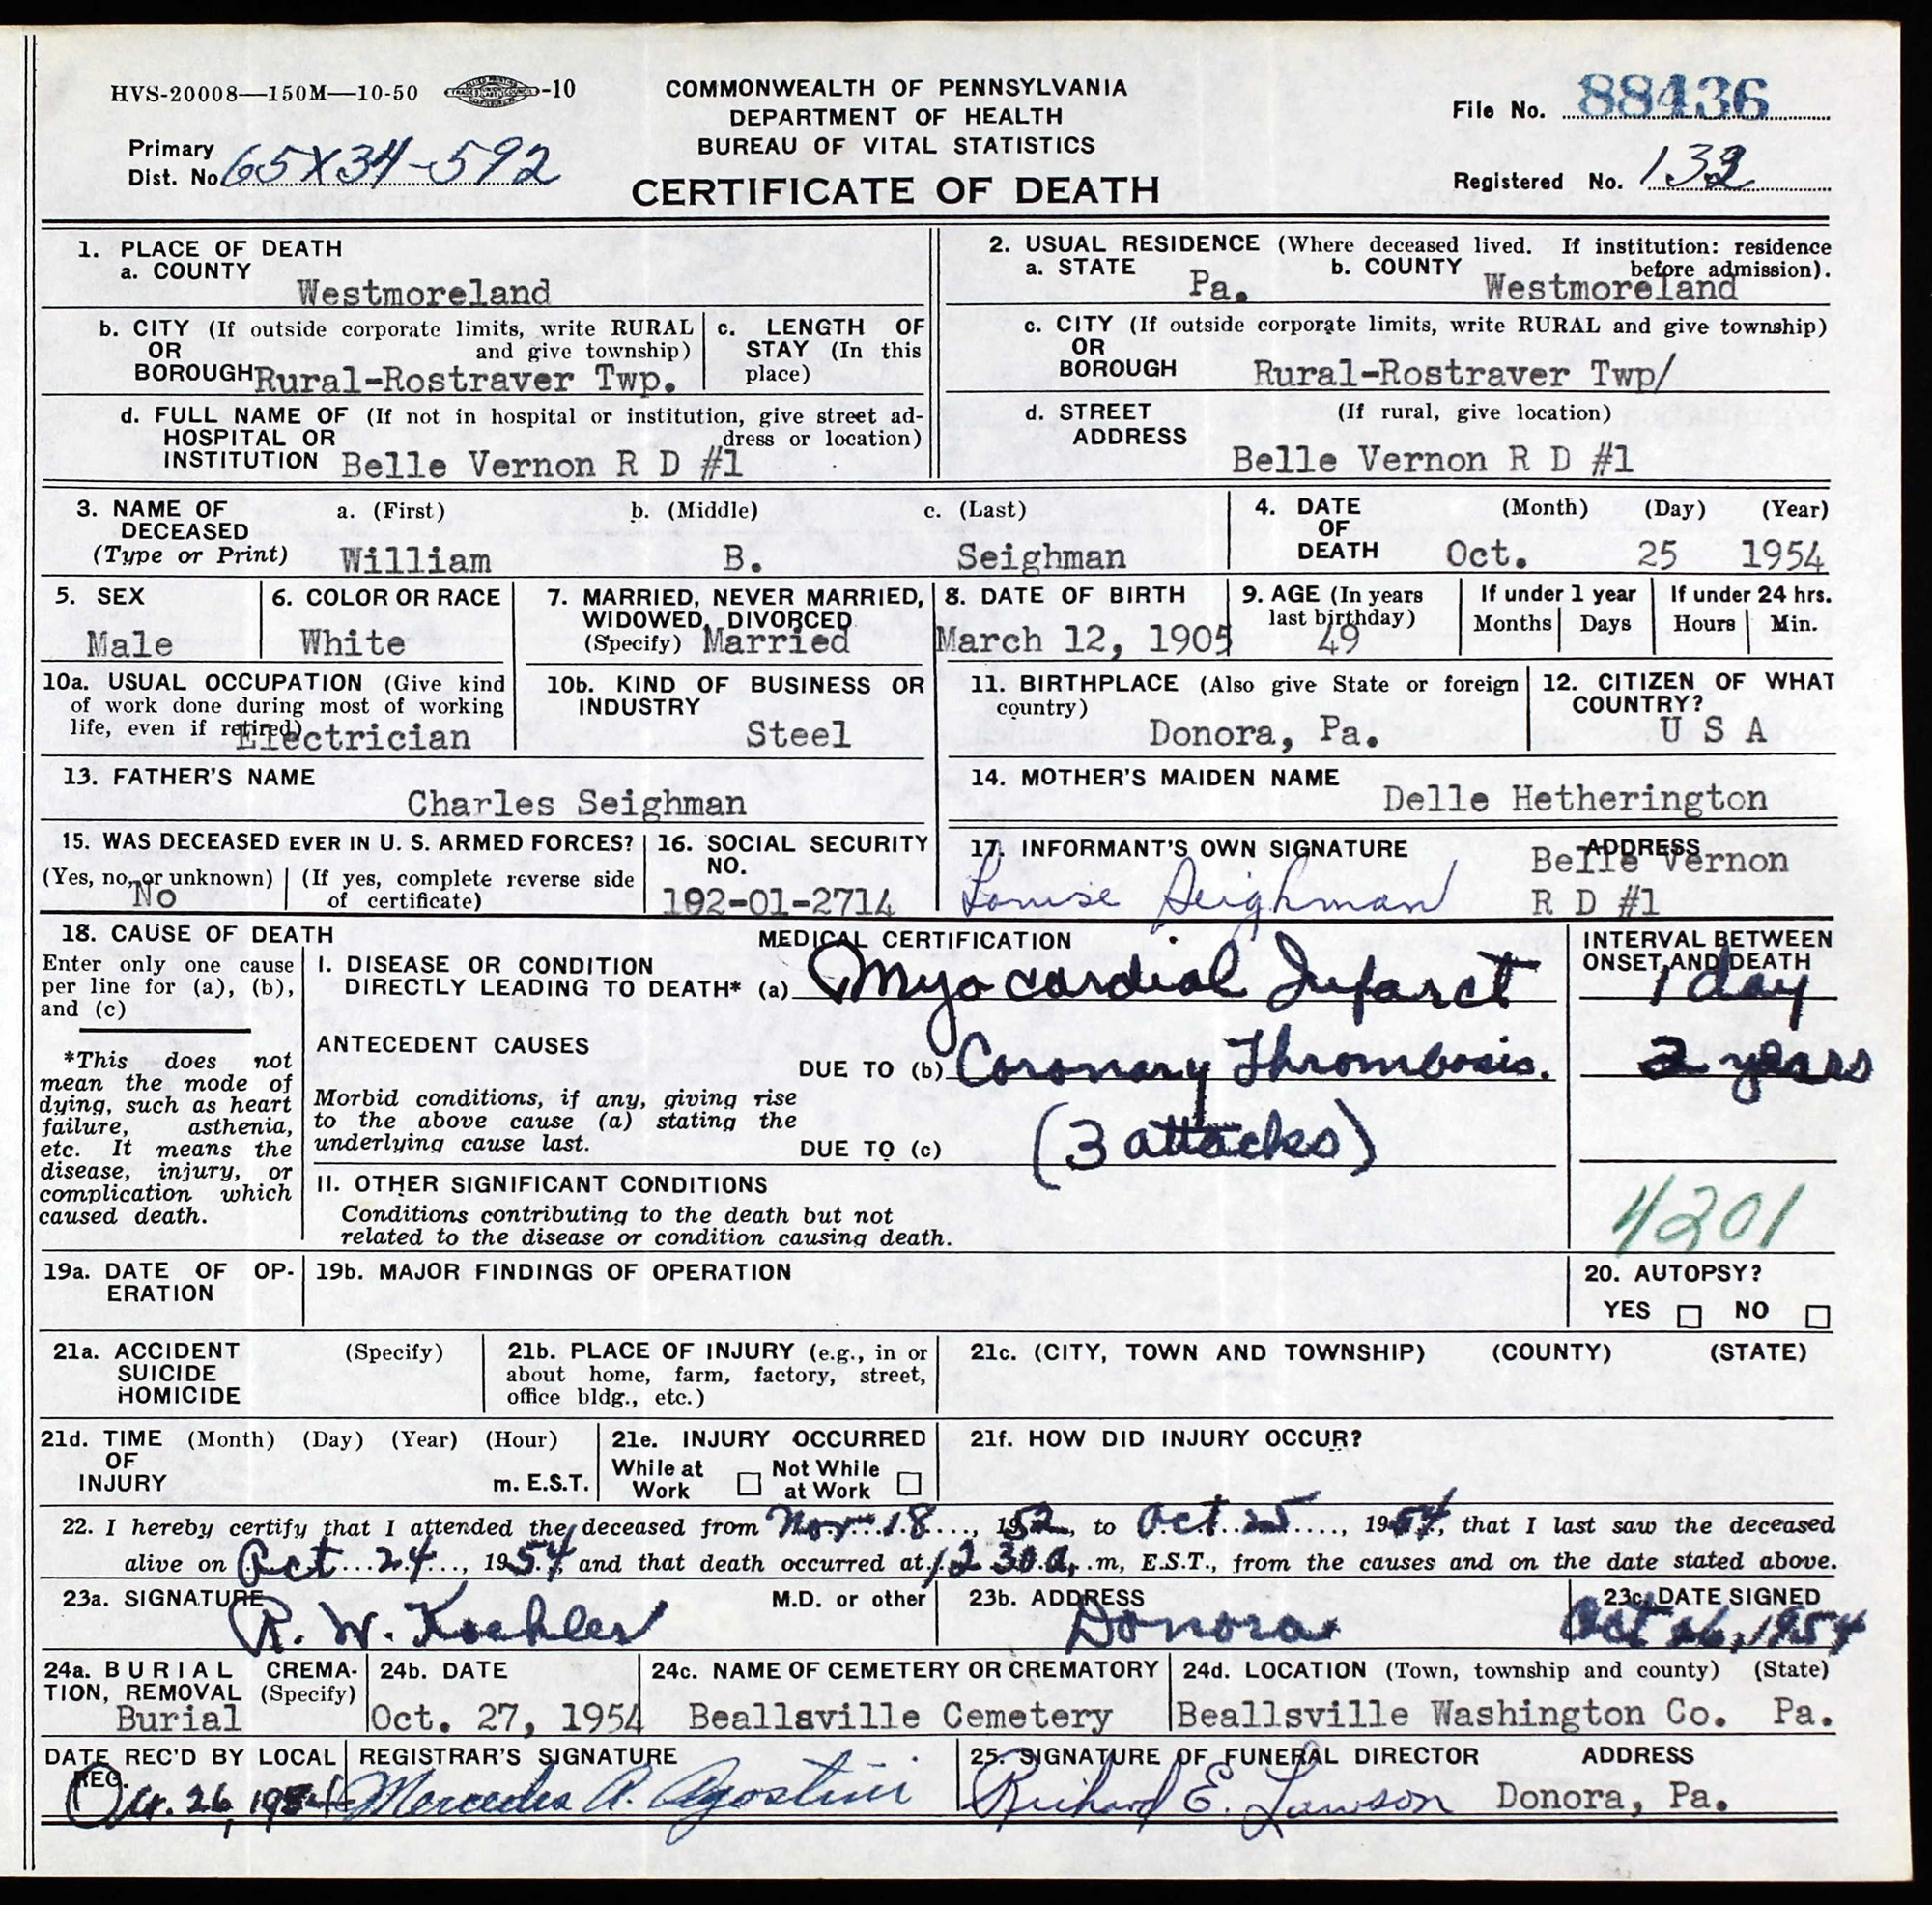 HVS-20008—150M—10-50 -10
COMMONWEALTH OF PENNSYLVANIA
DEPARTMENT OF HEALTH
BUREAU OF VITAL STATISTICS
CERTIFICATE OF DEATH
File No. 88436
Primary
Dist. No. 65X34-592
Registered No. 132
1. PLACE OF DEATH
a. COUNTY
Westmoreland
2. USUAL RESIDENCE (Where deceased lived. If institution: residence
before admission).
a. STATE Pa. b. COUNTY Westmoreland
b. CITY (If outside corporate limits, write RURAL
OR and give township)
BOROUGH Rural-Rostraver Twp.
c. LENGTH OF
STAY (In this
place)
c. CITY (If outside corporate limits, write RURAL and give township)
OR
BOROUGH Rural-Rostraver Twp/
d. FULL NAME OF (If not in hospital or institution, give street ad-
HOSPITAL OR dress or location)
INSTITUTION Belle Vernon R D #1
d. STREET (If rural, give location)
ADDRESS
Belle Vernon R D #1
3. NAME OF a. (First) b. (Middle) c. (Last)
DECEASED
(Type or Print) William B. Seighman
4. DATE (Month) (Day) (Year)
OF
DEATH Oct. 25 1954
5. SEX
Male
6. COLOR OR RACE
White
7. MARRIED, NEVER MARRIED,
WIDOWED, DIVORCED
(Specify) Married
8. DATE OF BIRTH
March 12, 1905
9. AGE (In years
last birthday)
49
If under 1 year
Months Days
If under 24 hrs.
Hours Min.
10a. USUAL OCCUPATION (Give kind
of work done during most of working
life, even if retired)
Electrician
10b. KIND OF BUSINESS OR
INDUSTRY
Steel
11. BIRTHPLACE (Also give State or foreign
country)
Donora, Pa.
12. CITIZEN OF WHAT
COUNTRY?
U S A
13. FATHER'S NAME
Charles Seighman
14. MOTHER'S MAIDEN NAME
Delle Hetherington
15. WAS DECEASED EVER IN U. S. ARMED FORCES?
(Yes, no, or unknown) (If yes, complete reverse side
No of certificate)
16. SOCIAL SECURITY
NO.
192-01-2714
17. INFORMANT'S OWN SIGNATURE ADDRESS
Louise Seighman Belle Vernon
R D #1
18. CAUSE OF DEATH
Enter only one cause
per line for (a), (b),
and (c)
*This does not
mean the mode of
dying, such as heart
failure, asthenia,
etc. It means the
disease, injury, or
complication which
caused death.
MEDICAL CERTIFICATION
I. DISEASE OR CONDITION
DIRECTLY LEADING TO DEATH* (a) Myocardial Infarct
ANTECEDENT CAUSES
DUE TO (b) Coronary Thrombosis.
Morbid conditions, if any, giving rise
to the above cause (a) stating the
underlying cause last.
DUE TO (c) (3 attacks)
II. OTHER SIGNIFICANT CONDITIONS
Conditions contributing to the death but not
related to the disease or condition causing death.
INTERVAL BETWEEN
ONSET AND DEATH
1 day
2 years
4201
19a. DATE OF OP-
ERATION
19b. MAJOR FINDINGS OF OPERATION
20. AUTOPSY?
YES NO
21a. ACCIDENT (Specify)
SUICIDE
HOMICIDE
21b. PLACE OF INJURY (e.g., in or
about home, farm, factory, street,
office bldg., etc.)
21c. (CITY, TOWN AND TOWNSHIP) (COUNTY) (STATE)
21d. TIME (Month) (Day) (Year) (Hour)
OF
INJURY m. E.S.T.
21e. INJURY OCCURRED
While at Not While
Work at Work
21f. HOW DID INJURY OCCUR?
22. I hereby certify that I attended the deceased from Nov 18, 1952, to Oct. 25, 1954, that I last saw the deceased
alive on Oct 24, 1954, and that death occurred at 12 30 a. m, E.S.T., from the causes and on the date stated above.
23a. SIGNATURE M.D. or other
R. W. Koehler
23b. ADDRESS
Donora
23c. DATE SIGNED
Oct 26, 1954
24a. BURIAL CREMA-
TION, REMOVAL (Specify)
Burial
24b. DATE
Oct. 27, 1954
24c. NAME OF CEMETERY OR CREMATORY
Beallsville Cemetery
24d. LOCATION (Town, township and county) (State)
Beallsville Washington Co. Pa.
DATE REC'D BY LOCAL
REG.
Oct. 26, 1954
REGISTRAR'S SIGNATURE
Mercedes A. Agostini
25. SIGNATURE OF FUNERAL DIRECTOR ADDRESS
Richard E. Lawson Donora, Pa.